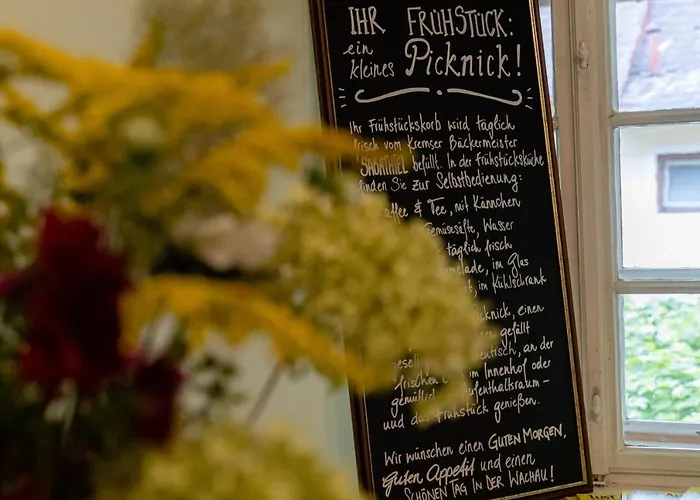 IHR FRÜHSTÜCK:
ein
kleines Picknick!
Ihr Frühstückskorb wird täglich
frisch vom Kremser Bäckermeister
"SABATHIEL" befüllt. In der Frühstücksküche
finden Sie zur Selbstbedienung:
& Tee, mit Kännchen
Gemüsesäfte, Wasser
täglich frisch
im Glas
im Kühlschrank
einen
gefällt
an der
frischen im Innenhof oder
gemütlich
und das Frühstück genießen.
Wir wünschen einen GUTEN MORGEN,
Guten Appetit und einen
SCHÖNEN TAG IN DER WACHAU!